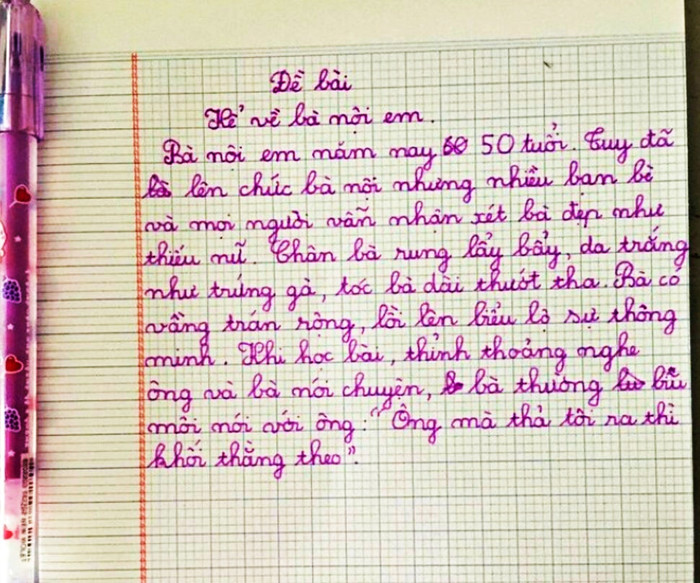 Đề bài
Kể về bà nội em.
Bà nội em năm nay 60 50 tuổi. Tuy đã
lên chức bà nội nhưng nhiều bạn bè
và mọi người vẫn nhận xét bà đẹp như
thiếu nữ. Chân bà rung lẩy bẩy, da trắng
như trứng gà, tóc bà dài thướt tha. Bà có
vầng trán rộng, lồi lên biểu lộ sự thông
minh. Khi học bài, thỉnh thoảng nghe
ông và bà nói chuyện, bà thường bĩu
môi nói với ông: "Ông mà thả tôi ra thì
khối thằng theo".